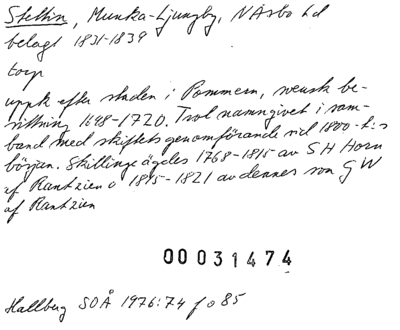 Stettin, Munka-Ljungby, N Åsbo hd
belagt 1831-1839
torp
uppk efter staden i Pommern, svensk be-
sittning 1648-1720. Trol namngivet i sam-
band med skiftets genomförande vid 1800-t:s
början. Skillinge ägdes 1768-1815 av S H Horn
af Rantzien o 1815-1821 av dennes son G W
af Rantzien
00031474
Hallberg SOÅ 1976:74 f o 85